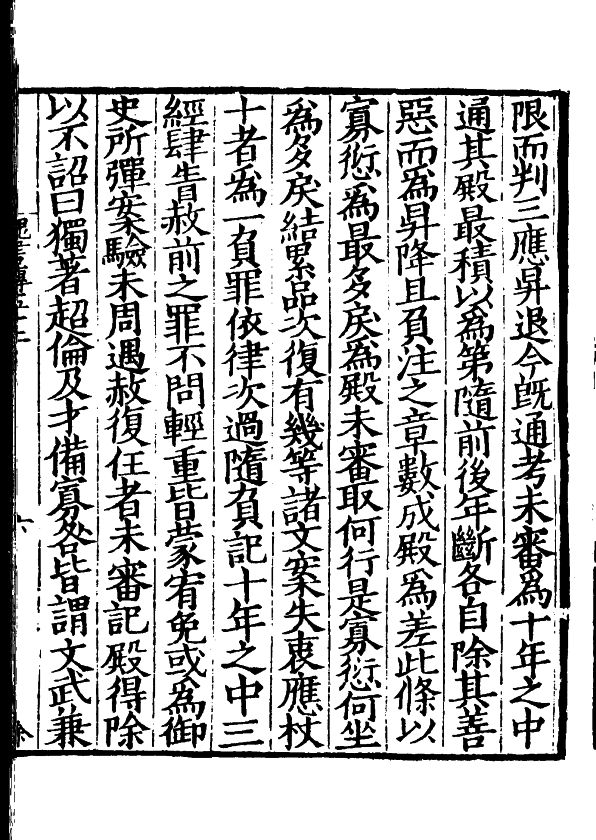 限而判三應昇退今旣通考未審爲十年之中
通其殿最積以爲第隨前後年斷各自除其善
惡而爲昇降且負注之章數成殿爲差此條以
寡愆爲最多戾爲殿未審取何行是寡愆何坐
爲多戾結累品次復有幾等諸文案失衷應杖
十者爲一負罪依律次過隨負記十年之中三
經肆眚赦前之罪不問輕重皆蒙宥免或爲御
史所彈案驗未周遇赦復任者未審記殿得除
以不詔曰獨著超倫及才備寡咎皆謂文武兼